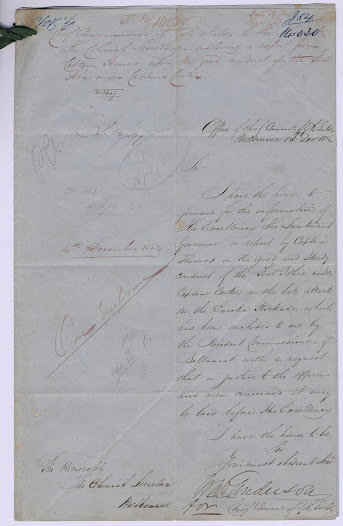 854
14020
Chief Commissioner of Gold Fields to the
The Colonial Secretary enclosing a report from
Captain Thomas upon the good conduct of the Foot
Police under Captain Carter
14th December 1854
One Enclosure
Office of Chief Commr of Gold Fields
Melbourne 14 Decr 1854
Sir
I have the honor to
forward for the information of
His Excellency The Lieutenant
Governor a report by Captain
Thomas on the good and steady
conduct of the Foot Police under
Captain Carter in the late attack
on the Eureka Stockade, which
has been enclosed to me by
the Resident Commissioner of
Ballaarat with a request
that in justice to the officer
and men concerned it may
be laid before His Excellency
I have the honor to be
Sir
Your most obedient Servt
for Chief Commr of Gold Fields
The Honorable
The Colonial Secretary
Melbourne